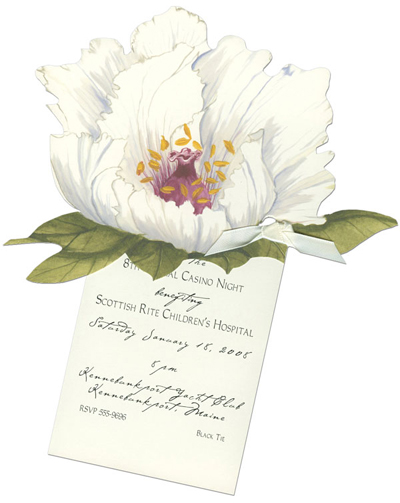 the
8th Casino Night
benefiting
Scottish Rite Children's Hospital
Saturday January 15, 2005
5 pm
Kennebunkport Yacht Club
Kennebunkport, Maine
RSVP 555-9696
Black Tie